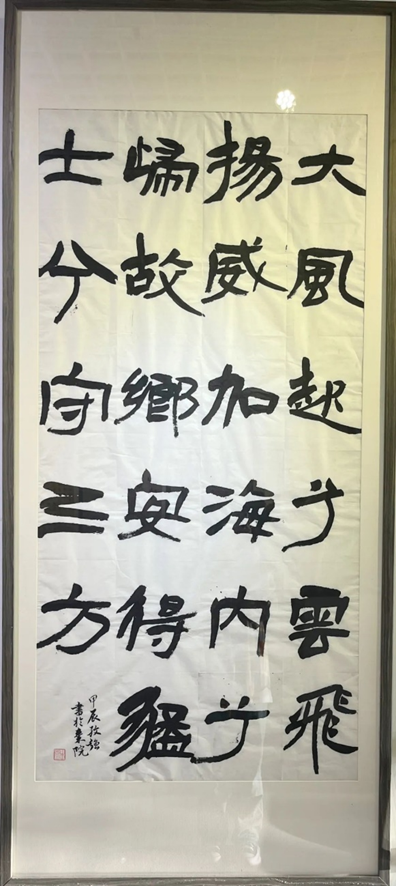 大風起兮雲飛
揚威加海內兮
歸故鄉安得猛
士兮守三方
甲辰
書於